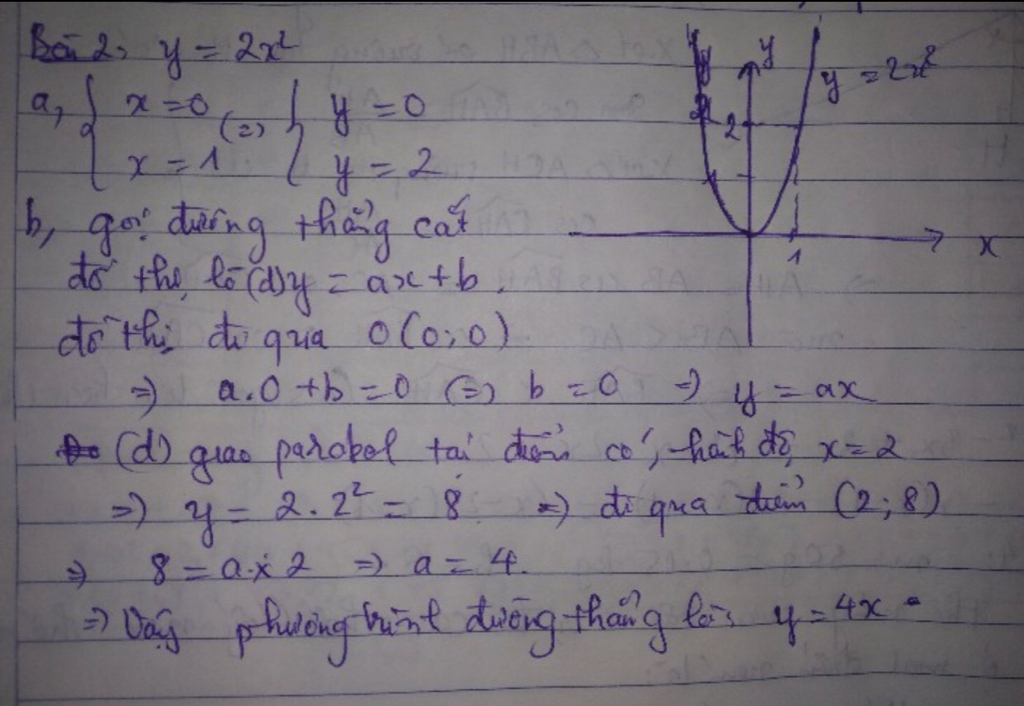 Bài 2, y = 2x²
a, { x = 0 (=) { y = 0
x = 1 y = 2
y
y = 2x²
2
1
x
b, gọi đường thẳng cắt
đồ thị là (d) y = ax + b.
đồ thị đi qua O(0;0)
=) a.0 + b = 0 (=) b = 0 =) y = ax
(d) giao parabol tại điểm có hành độ x = 2
=) y = 2.2² = 8 =) đi qua điểm (2;8)
=) 8 = a.x 2 =) a = 4.
=) Vậy phương trình đường thẳng là: y = 4x